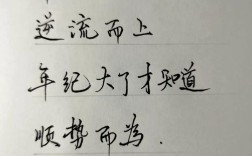 逆流而上
年纪大了才知道
顺势而为.